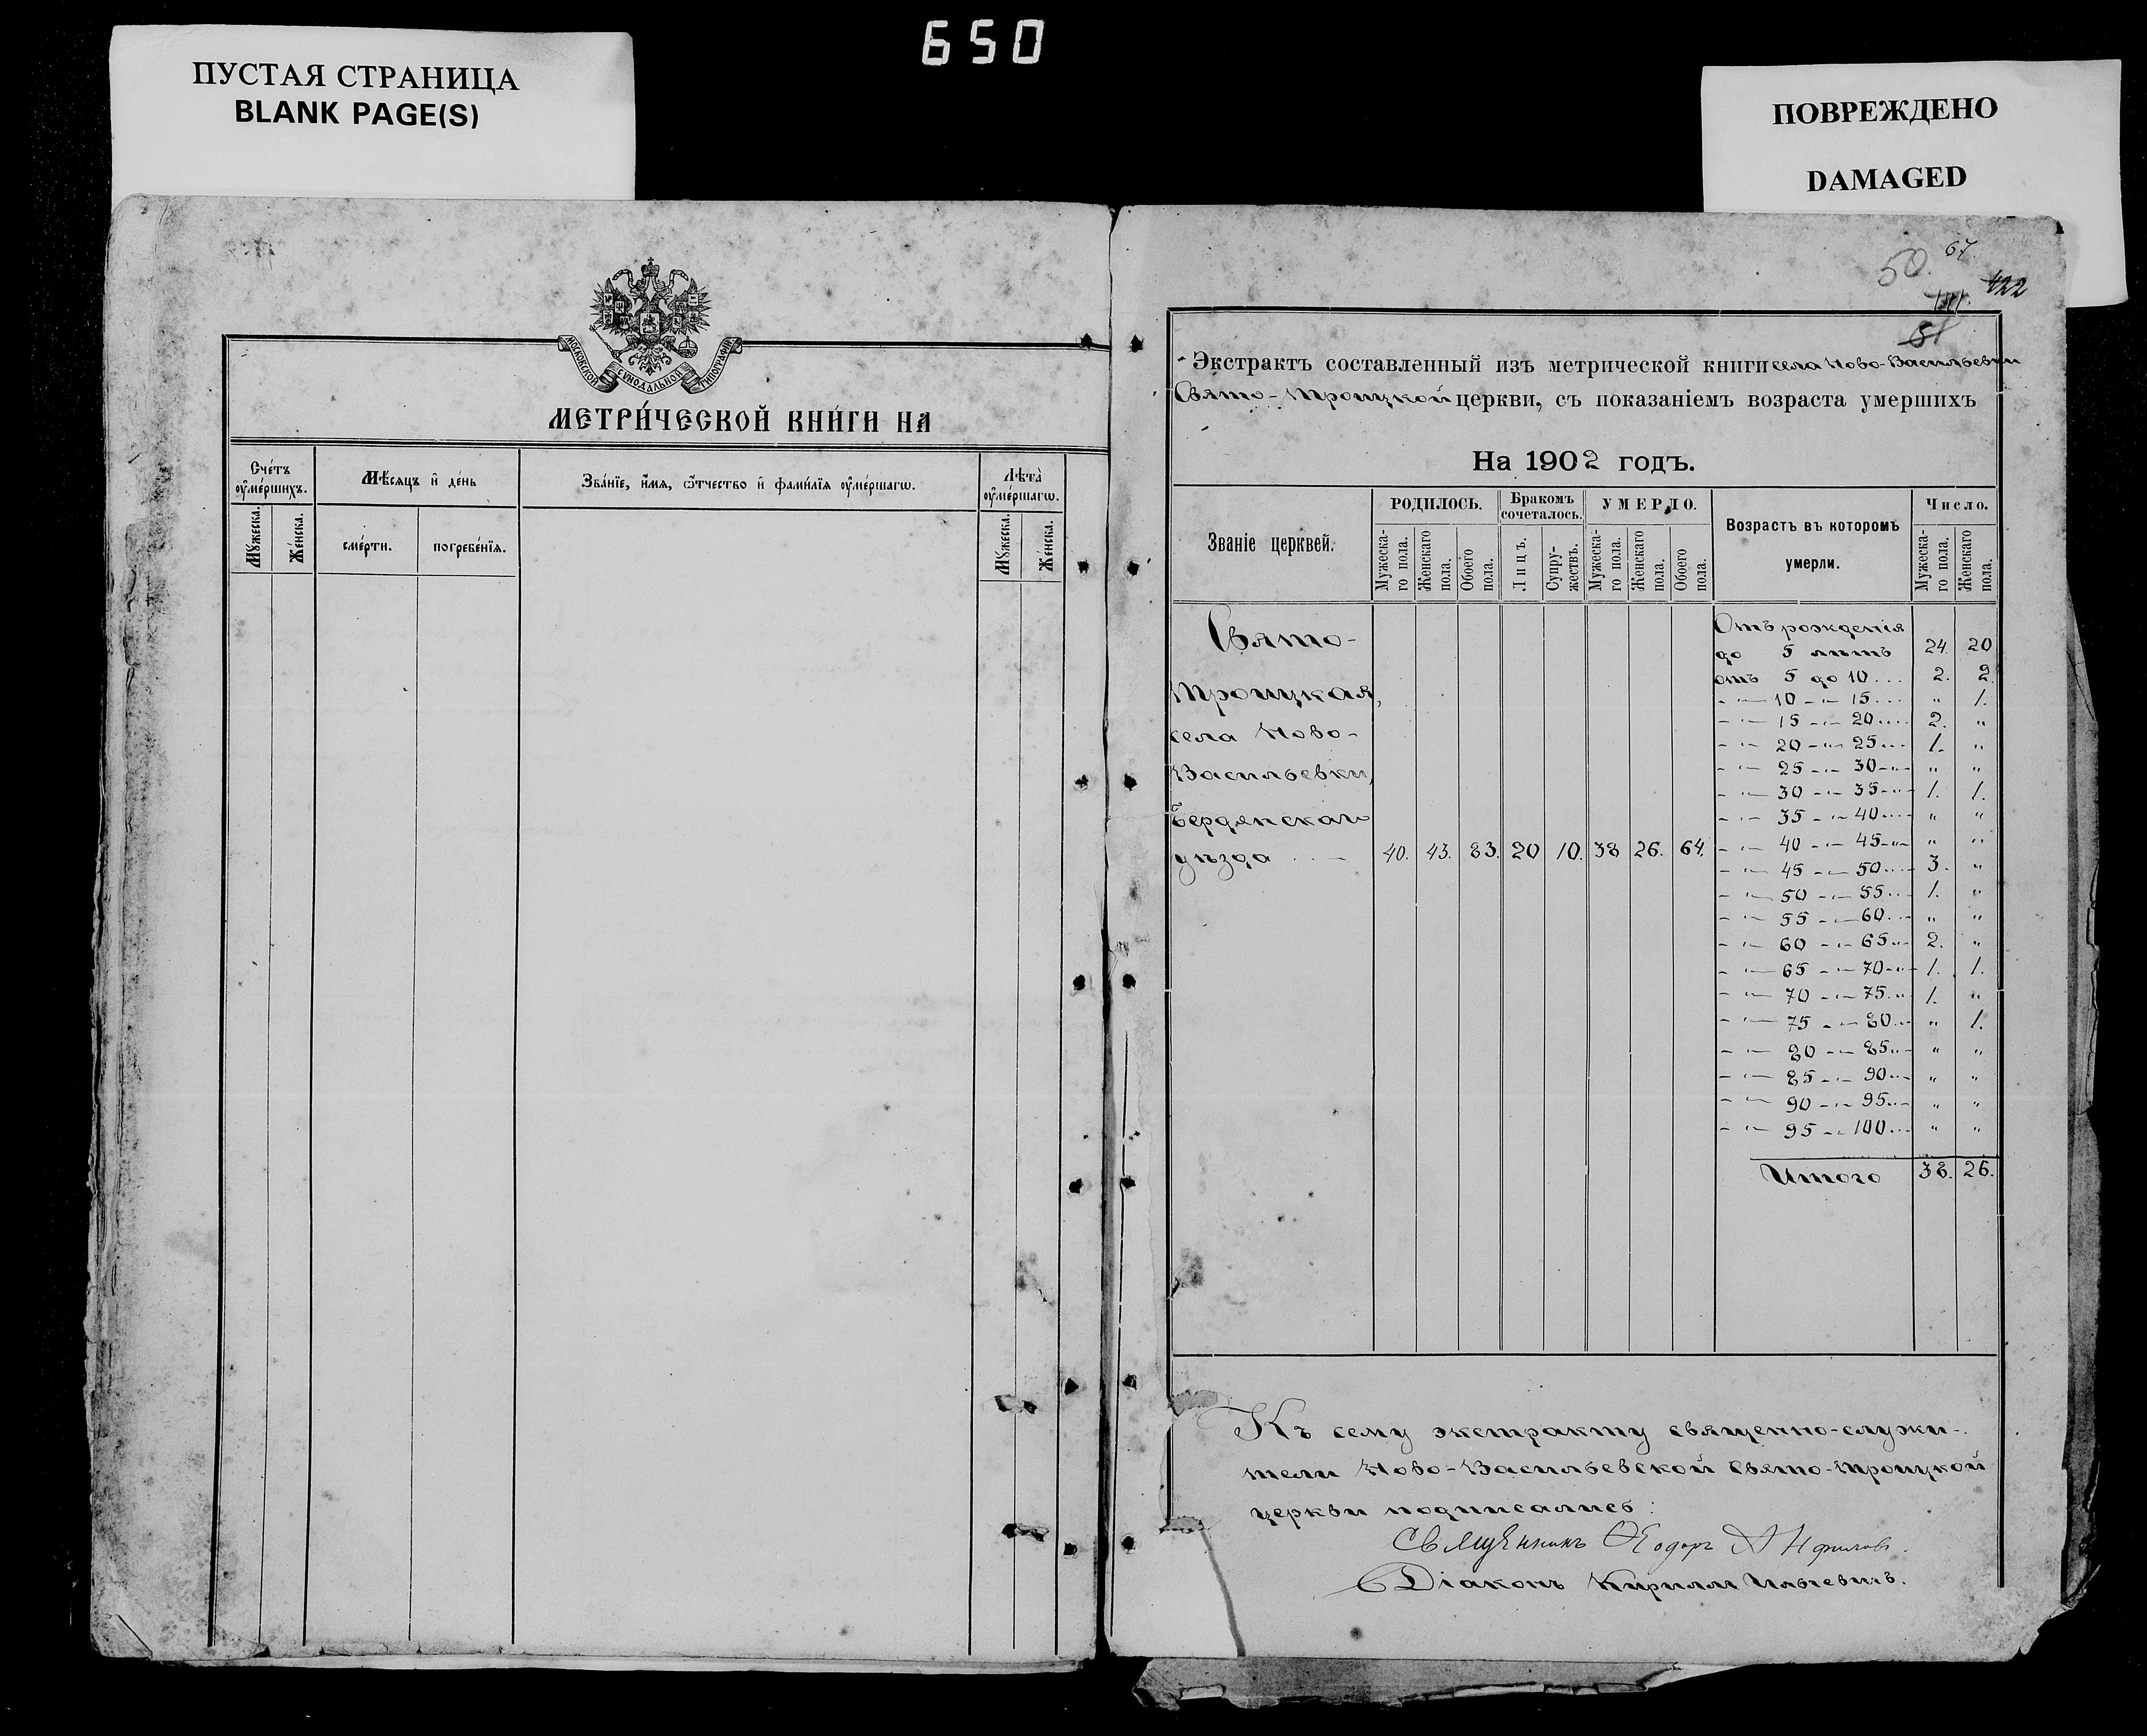 650
ПУСТАЯ СТРАНИЦА
BLANK PAGE(S)
ПОВРЕЖДЕНО
DAMAGED
МОСКОВСКОЙ СУНОДАЛЬНОЙ ТИПОГРАФІИ
МЕТРИ́ЧЕСКОЙ КНИ́ГИ НА
Сче́тъ ᲂу҆ме́ршихъ.
Мꙋ́жеска. Же́нска.
Мѣ́сяцъ и҆ де́нь
сме́рти. погребе́нїѧ.
Зва́нїе, и҆́мѧ, ѻ҆́тчество и҆ фами́лїѧ ᲂу҆ме́ршагѡ.
Лѣ́та ᲂу҆ме́ршагѡ.
Мꙋ́жеска. Же́нска.
50. 67.
422
Экстрактъ составленный изъ метрической книги села Ново-Васильевки
Свято-Троицкой церкви, съ показаніемъ возраста умершихъ
На 1902 годъ.
Званіе церквей.
РОДИЛОСЬ.
Мужеска-го пола. Женскаго пола. Обоего пола.
Бракомъ сочеталось.
Лицъ. Супру-жествъ.
УМЕРЛО.
Мужеска-го пола. Женскаго пола. Обоего пола.
Возрастъ въ которомъ умерли.
Число.
Мужеска-го пола. Женскаго пола.
Свято-
Троицкая,
села Ново-
Васильевки,
Бердянскаго
уѣзда . . — 40. 43. 83. 20 10. 38 26. 64.
Отъ рожденія
до 5 лѣтъ 24. 20
отъ 5 до 10 . . . 2. 2.
- „ — 10 - „ — 15 . . . „ 1.
- „ — 15 - „ — 20 . . . 2. „
- „ — 20 - „ — 25 . . . 1. „
- „ — 25 - „ — 30 - „ - „ „
- „ — 30 - „ — 35 - „ - 1. 1.
- „ — 35 - „ — 40 . . . „ „
- „ — 40 - „ — 45 - „ - „ „
- „ — 45 - „ — 50 . . . 3. „
- „ — 50 - „ — 55 . . . 1. „
- „ — 55 - „ — 60 . . . „ „
- „ — 60 - „ — 65 . . . 2. „
- „ — 65 - „ — 70 - „ - 1. 1.
- „ — 70 - „ — 75 . . . 1. „
- „ — 75 - „ — 80 . . . „ 1.
- „ — 80 - „ — 85 . . . „ „
- „ — 85 - „ — 90 . . . „ „
- „ — 90 - „ — 95 . . . „ „
- „ — 95 - „ 100 . . . „ „
Итого 38. 26.
Къ сему экстракту священно-служи-
тели Ново-Васильевской Свято-Троицкой
церкви подписались:
Священникъ Ѳеодоръ
Діаконъ Кириллъ Ильевичъ.